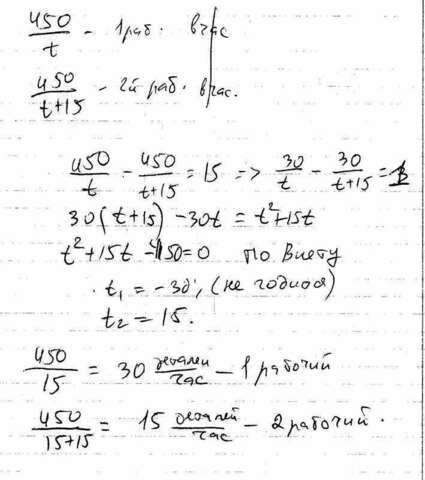 450/t - 1 раб. в час
450/(t+15) - 2й раб. в час.
450/t - 450/(t+15) = 15 => 30/t - 30/(t+15) = 1
30(t+15) - 30t = t²+15t
t²+15t - 450 = 0 по Виету
t₁ = -30, (не годится)
t₂ = 15.
450/15 = 30 деталей/час - 1 рабочий
450/(15+15) = 15 деталей/час - 2 рабочий.